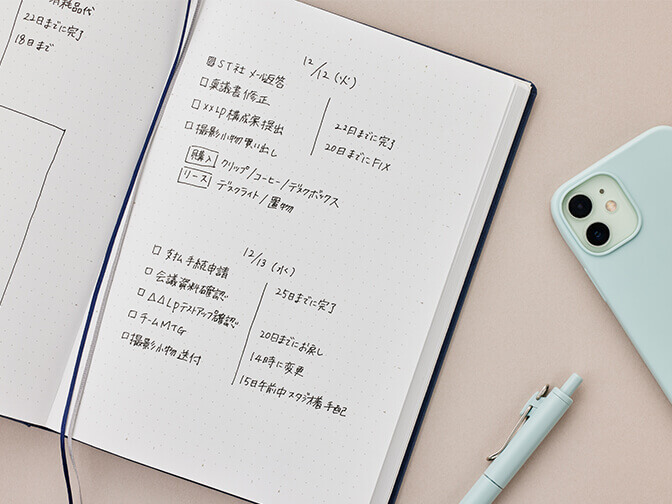 消耗品代
22日までに完了
18日まで
12/12 (火)
ST社 メール返答
□ 稟議書修正
□ ××LP構成案提出 22日までに完了
□ 撮影小物洗い出し 20日までにFIX
購入 クリップ/コーヒー/デスクボックス
リース デスクライト/置物
12/13 (水)
□ 支払手続申請 25日までに完了
□ 会議資料確認
□ △△LPテストアップ確認 20日までにお戻し
□ チームMTG 14時に変更
□ 撮影小物送付 15日午前中スタジオ着手配